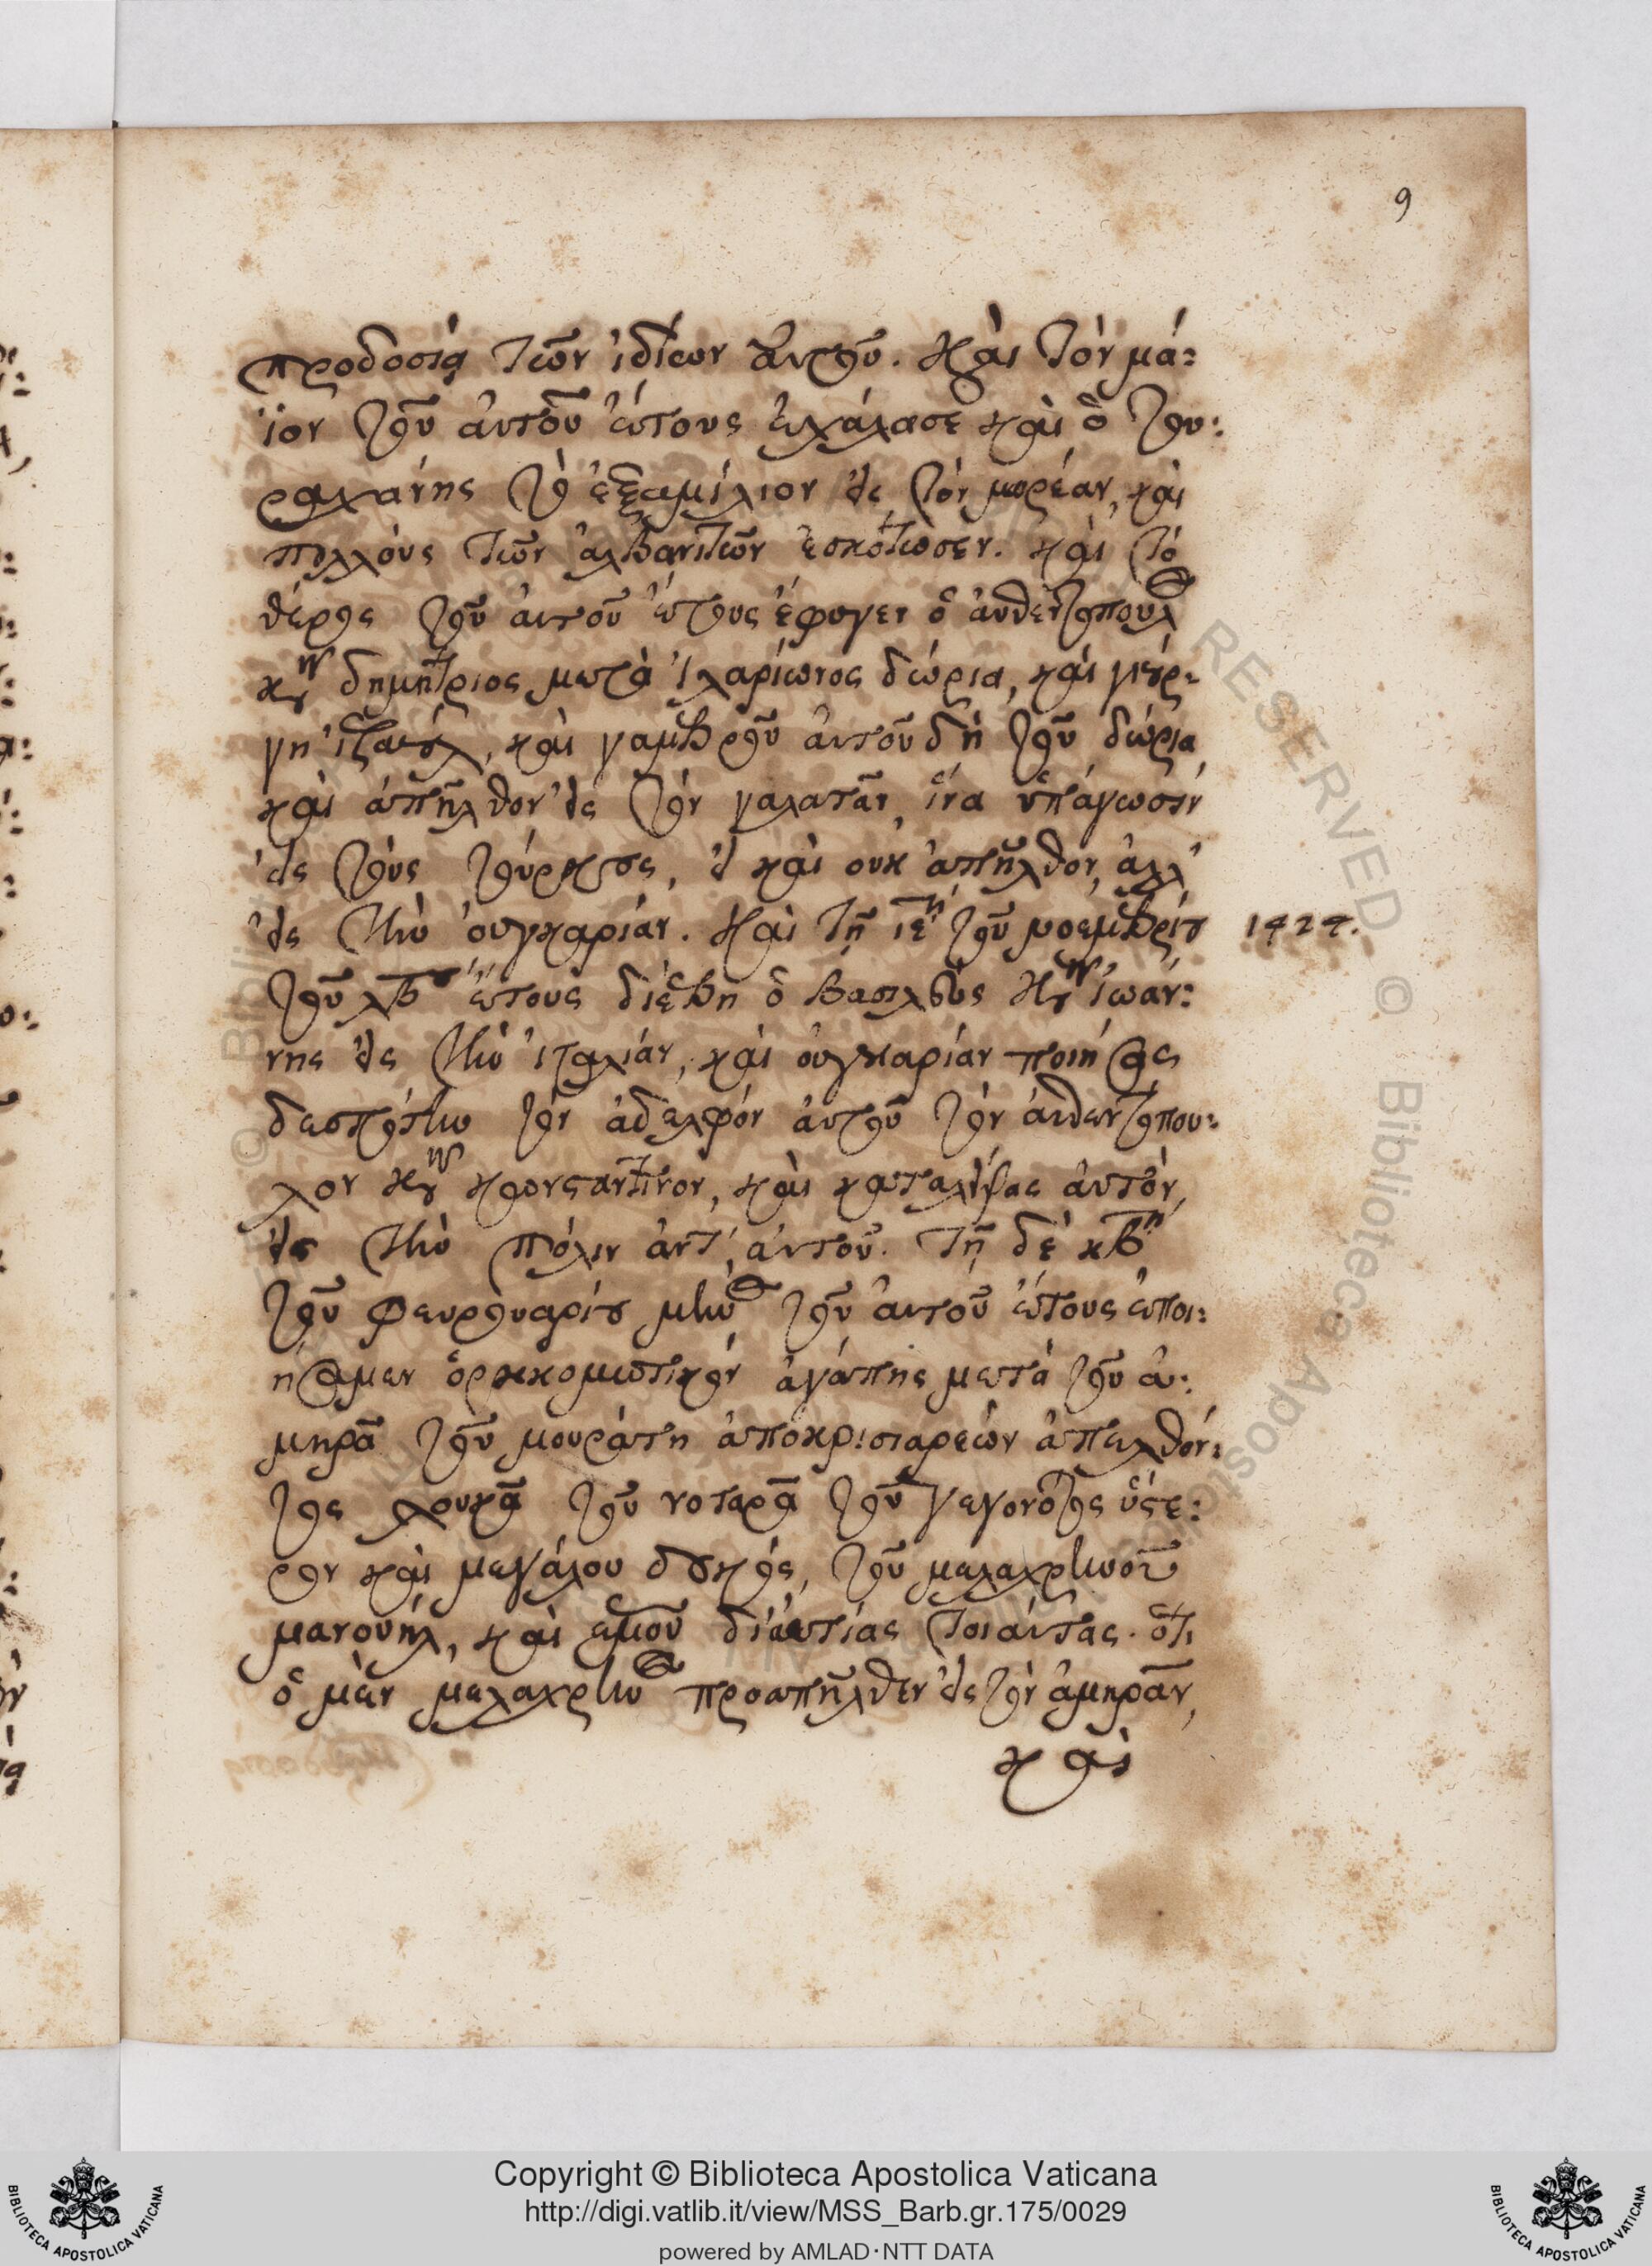 9
προδοσία τῶν ἰδίων αὐτοῦ. καὶ τὸν μά:
ϊον τοῦ αὐτοῦ ἔτους ἐχάλασε καὶ ὁ του:
ραχάνης τὸ ἑξαμίλιον εἰς τὸν μορέαν, καὶ
πολλοὺς τῶν ἀλβανιτῶν ἐσκότωσεν. καὶ τὸ
θέρος τοῦ αὐτοῦ ἔτους ἔφυγεν ὁ αὐθεντόπουλος
κὺρ δημήτριος μετὰ ἱλαρίωνος δώρια, καὶ γιέρ:
γη ἰζαούλ, καὶ γαμβροῦ αὐτοῦ δὴ τοῦ δώρια
καὶ ἀπῆλθον εἰς τὸν γαλατᾶν, ἵνα ὑπάγωσιν
εἰς τοὺς τούρκους, εἰ καὶ οὐκ ἀπῆλθον, ἀλλ'
εἰς τὴν οὐγκαρίαν. καὶ τῇ ιε῀η τοῦ νοεμβρίου
1424.
τοῦ λβου ἔτους διέβη ὁ βασιλεὺς κὺρ ἰωάν:
νης εἰς τὴν ἰταλίαν, καὶ οὐγκαρίαν ποιήσας
δεσπότην τὸν ἀδελφὸν αὐτοῦ τὸν αὐθεντόπου:
λον κὺρ κωνσταντῖνον, καὶ καταλείψας αὐτὸν,
εἰς τὴν πόλιν ἀντ', αὐτοῦ. τῇ δὲ κβη
τοῦ φευρουαρίου μηνὸς τοῦ αὐτοῦ ἔτους ἐποι:
ήσαμεν ὁρκκομωτικὸν ἀγάπης μετὰ τοῦ ἀ:
μηρᾶ τοῦ μουράτη ἀποκρισιαρεών ἀπελθόν:
τος λουκᾶ τοῦ νοταρᾶ τοῦ γεγονότος ὕστε:
ρον καὶ μεγάλου δουκὸς, τοῦ μελαχρηνοῦ
μανουὴλ, καὶ ἐμοῦ δι' αἰτίας τοιαύτας. ὅτι
ὁ μὲν μελαχρηνὸς προαπῆλθεν εἰς τὸν ἀμηρᾶν,
καὶ
Copyright © Biblioteca Apostolica Vaticana
http://digi.vatlib.it/view/MSS_Barb.gr.175/0029
powered by AMLAD·NTT DATA